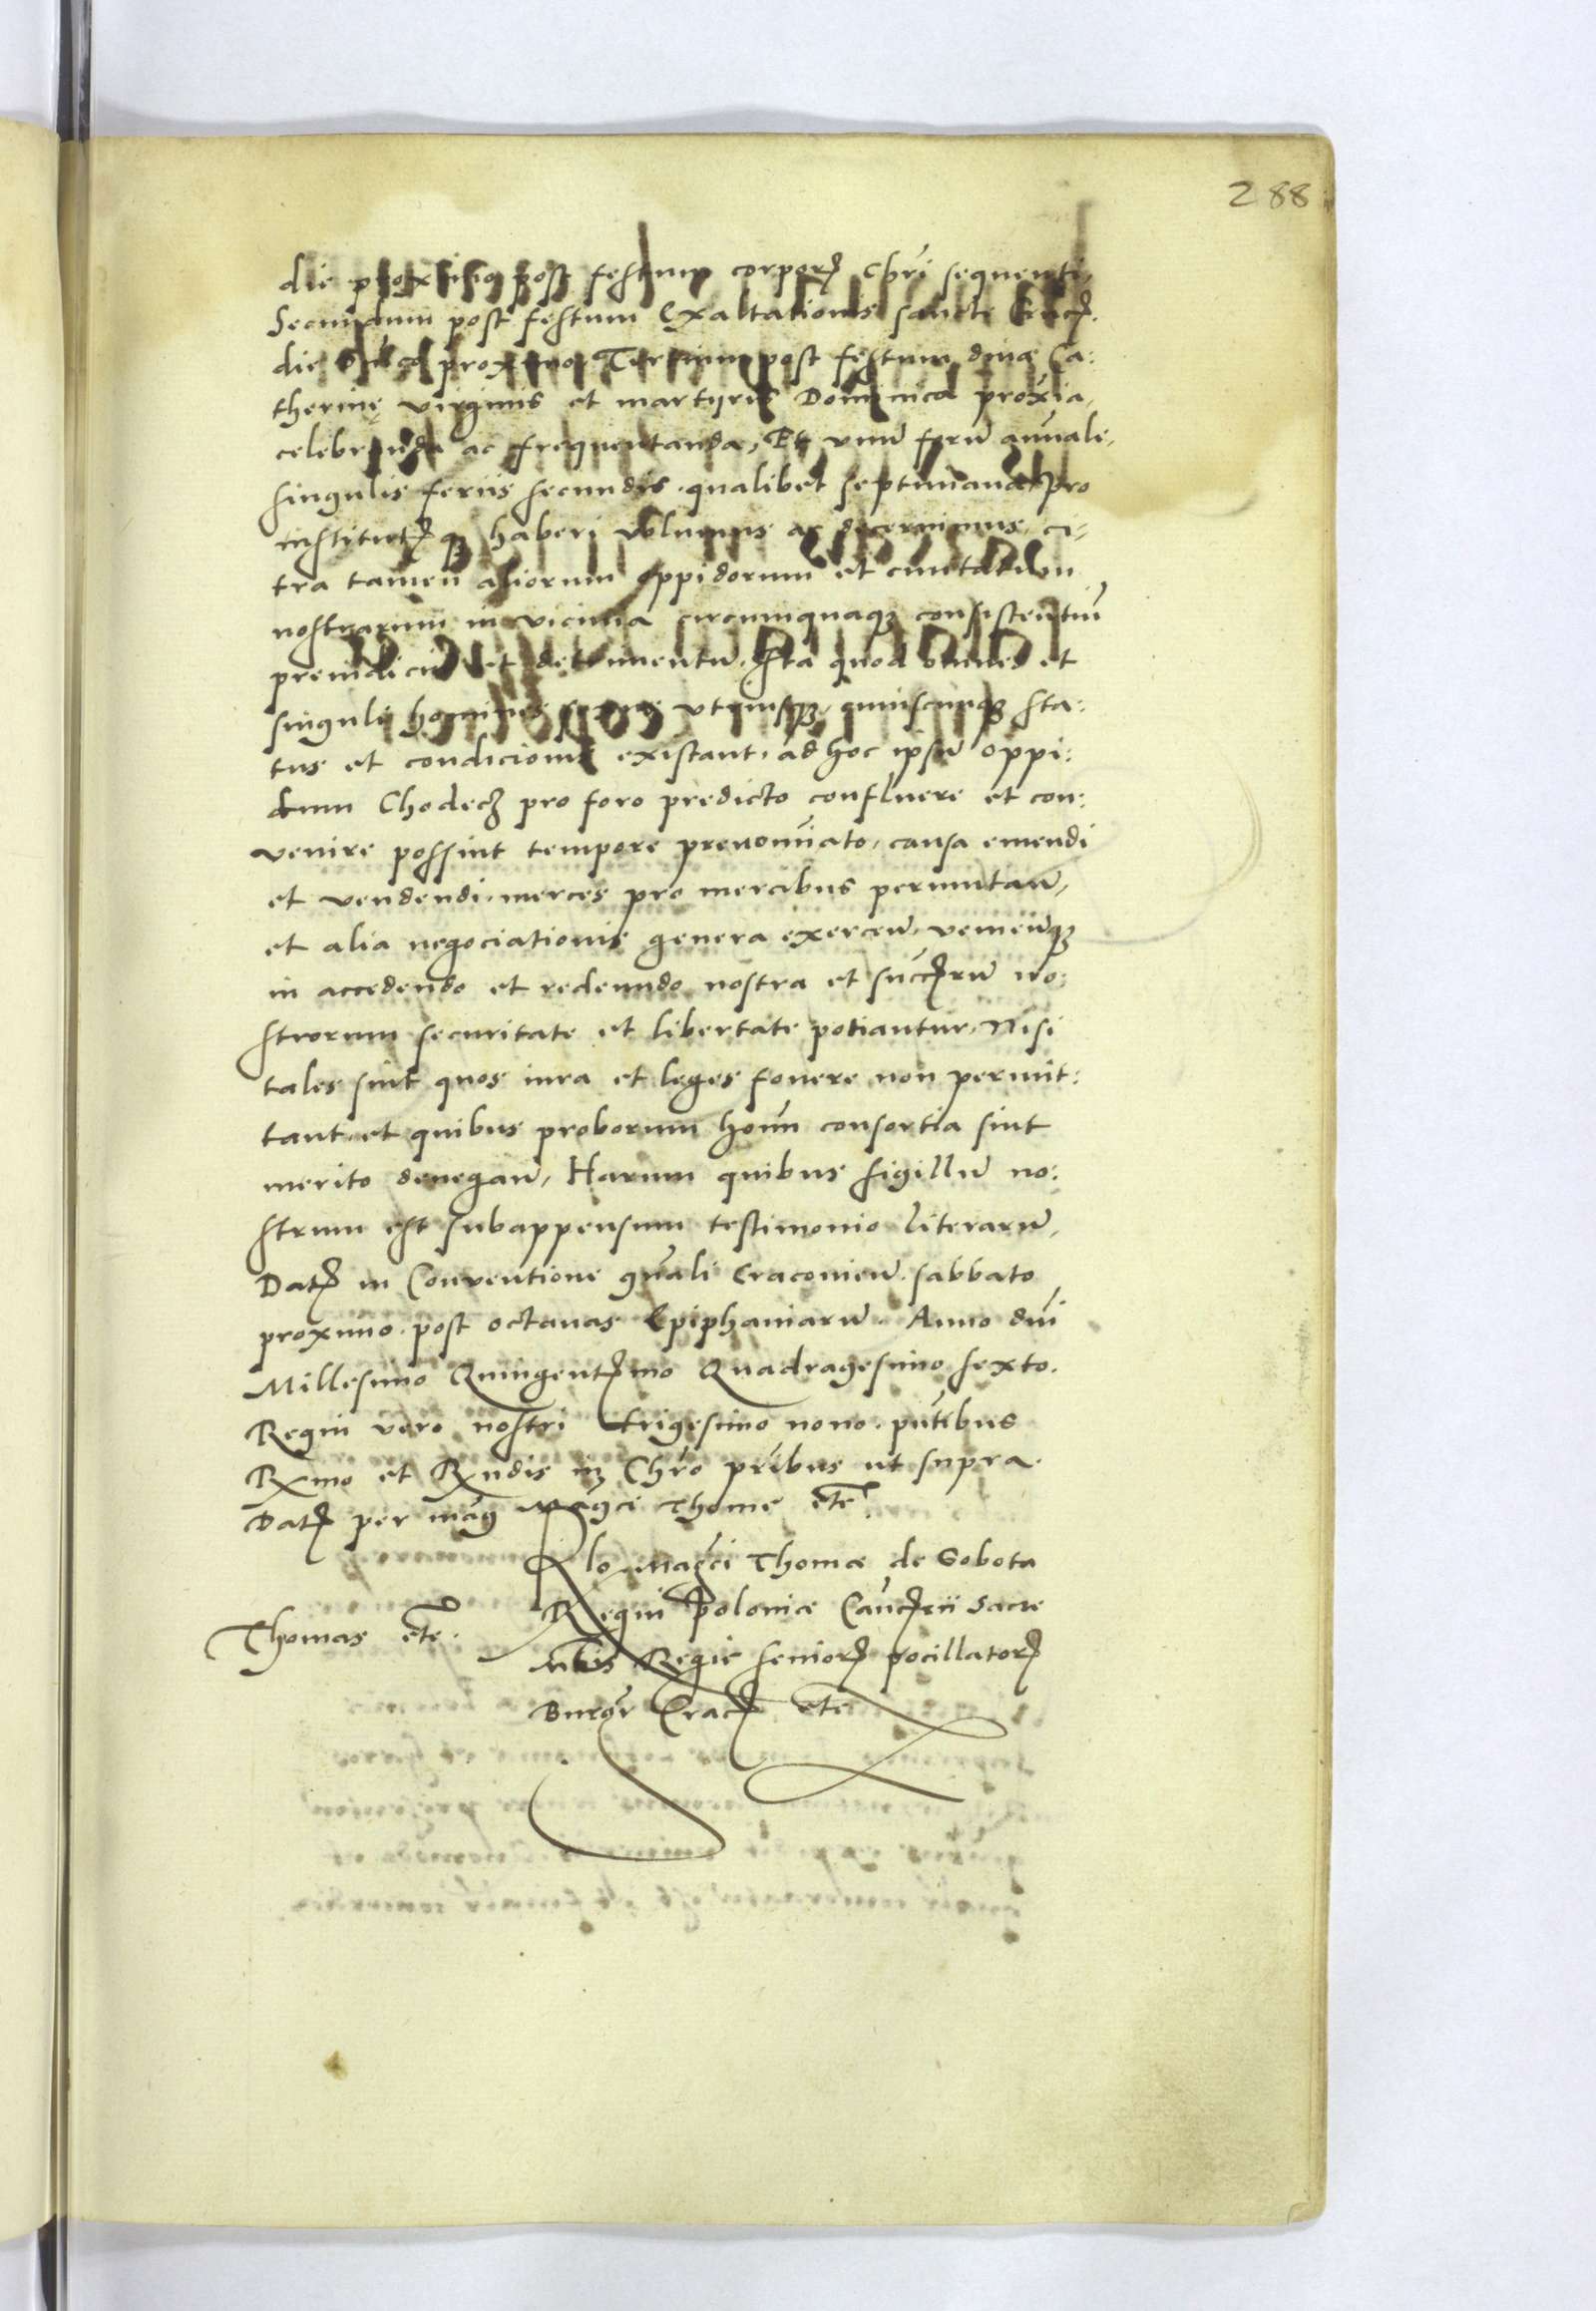 288
die proximo post festum corporis Chri sequenti,
Secundum post festum Exaltationis sancte Crucis.
die proximo Tertium post festum divæ Ca:
therinę virginis et martyris Dominica proxia,
celebranda ac frequentanda, Et unu foru annuale,
singulis feriis secundis. qualibet septimana pro
institutisq haberi volumus ac decernimus, ci:
tra tamen aliorum oppidorum et civitatum
nostrarum in vicinia circumquaq consistentiu
preiudiciu et detrimentu. Ita quod omnes et
singuli homines sexus utriusq, cuiuscunq sta:
tus et condicionis existant, ad hoc ipsu oppi:
dum Chodecz pro foro predicto confluere et con:
venire possint tempore prenominato, causa emendi
et vendendi, merces pro mercibus permutan,
et alia negociationis genera exercen, venienq
in accedendo et redeundo nostra et succru no:
strorum securitate et libertate potiantur, Nisi
tales sint quos iura et leges fovere non permit:
tant, et quibus proborum houm consortia sint
merito denegan, Harum quibus sigillu no:
strum est subappensum testimonio literaru,
Dat in Conventione gnali Cracovien. sabbato
proximo. post octavas Epiphaniaru. Anno dni
Millesimo Quingentmo Quadragesimo sexto.
Regni vero nostri trigesimo nono. pntibus
Rxmo et Rxndis in Chro pribus ut supra.
Dat per man Magci Thome etc
Rlo Magci Thomæ de Sobota
Regni Poloniæ Cancrii Sacre
Thomas etc.
Mtis Regie senior pocillator
Burgr Crac etc